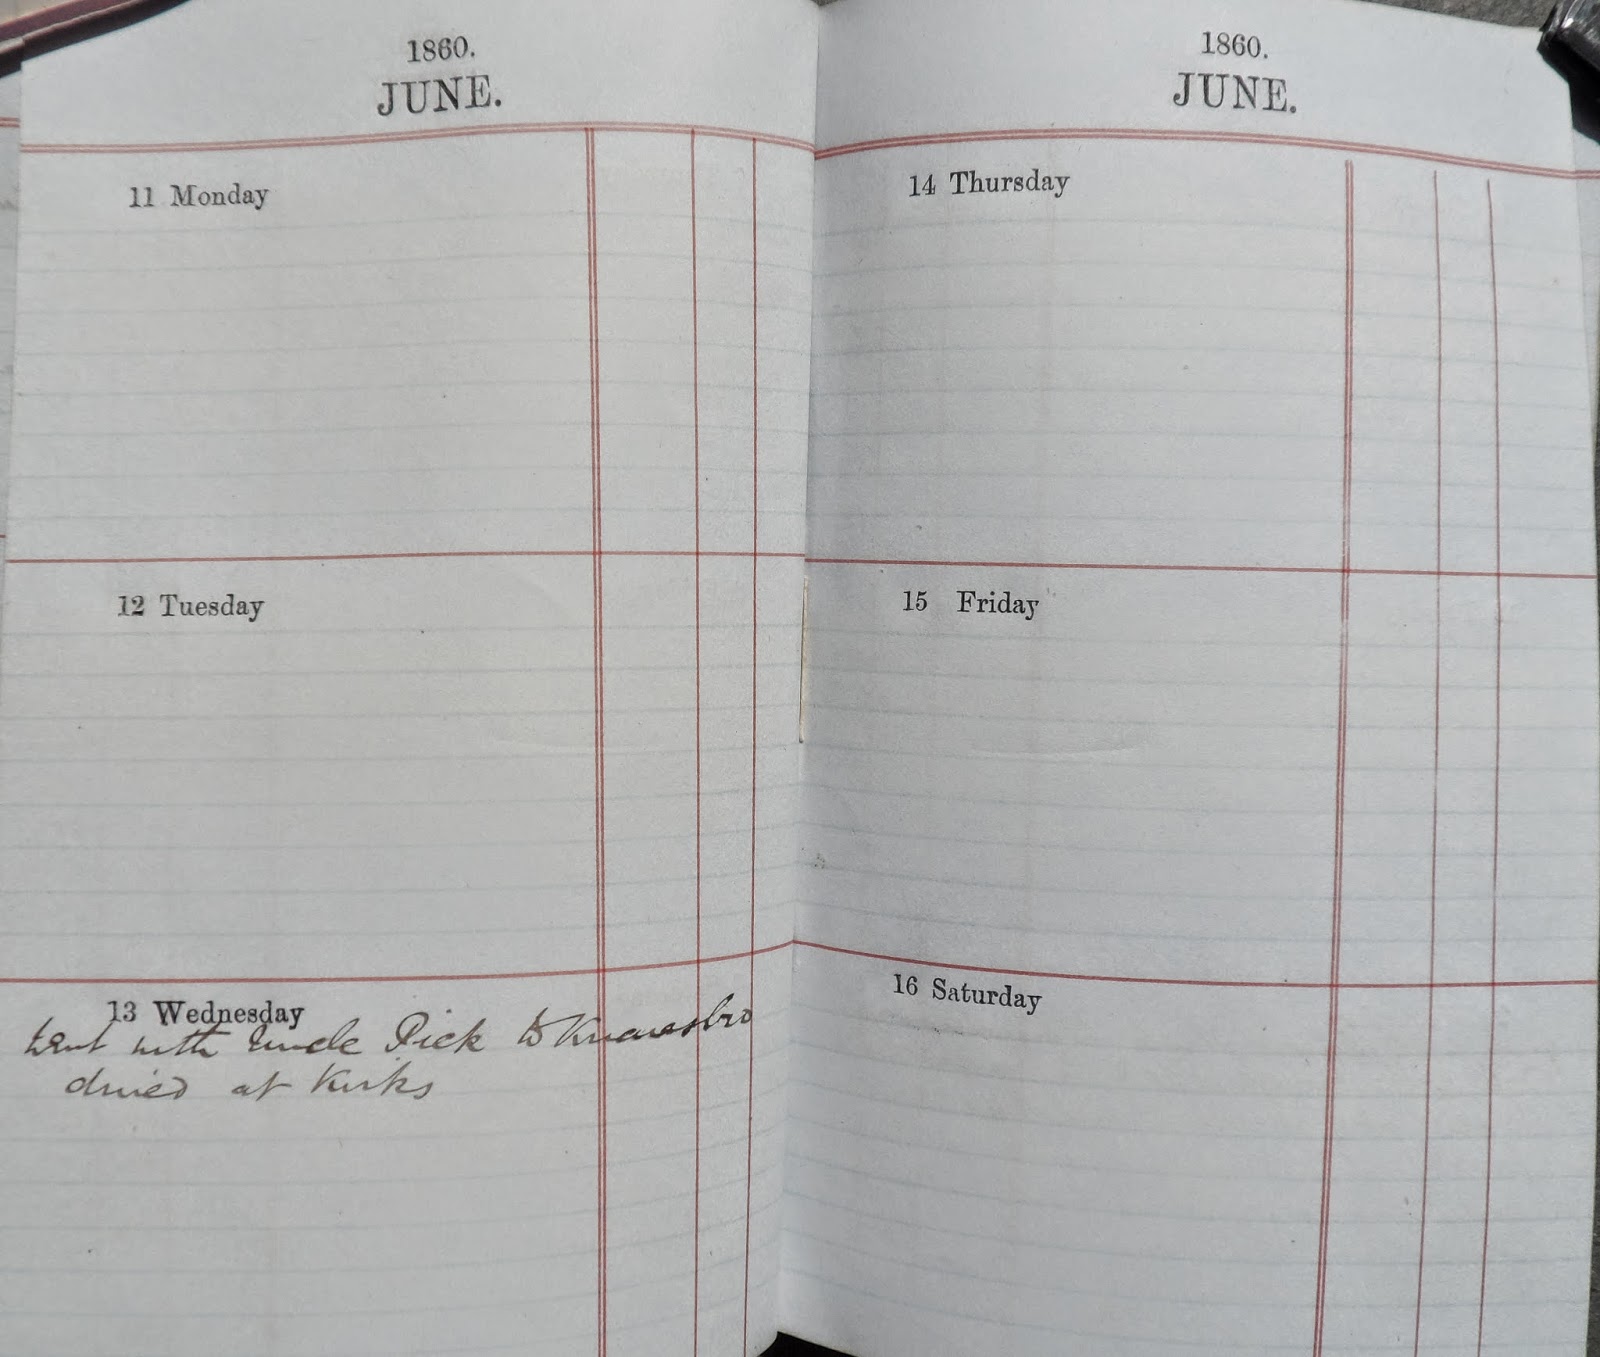 1860.
JUNE.
11 Monday
12 Tuesday
13 Wednesday
Went with Uncle Dick to Knaresbro
dined at Kirks
1860.
JUNE.
14 Thursday
15 Friday
16 Saturday